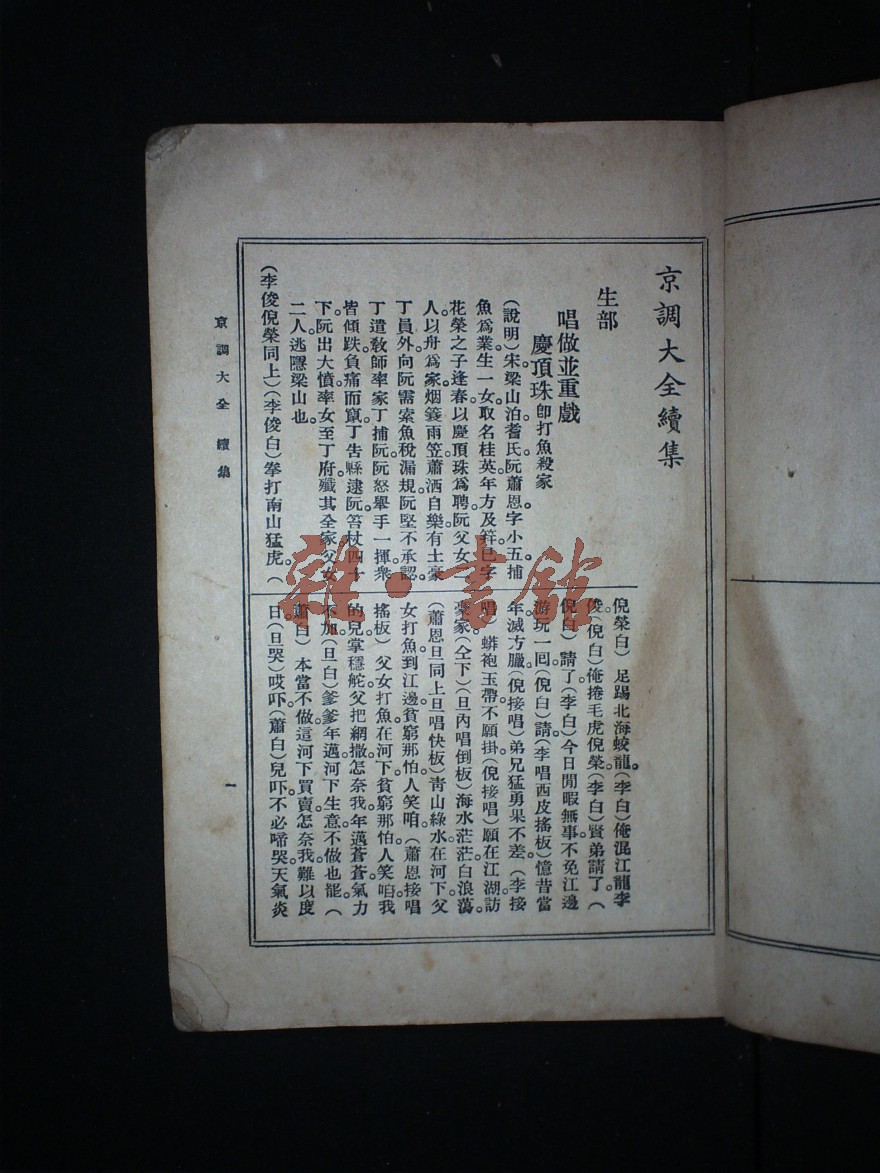 京調大全續集
生部
唱做並重戲
慶頂珠 卽打魚殺家
(說明)宋梁山泊耆氏阮蕭恩。字小五捕
魚爲業生一女取名桂英年方及笄已字
花榮之子逢春以慶頂珠爲聘。阮父女二
人以舟爲家烟簑雨笠蕭洒自樂有土豪
丁員外向阮需索魚稅漏規。阮堅不承認。
丁遣敎師率家丁捕阮。阮怒舉手一揮衆
皆傾跌負痛而竄。丁告縣逮阮。笞杖四十
下。阮出大憤率女至丁府殲其全家父女
二人逃隱梁山也。
(李俊倪榮同上)(李俊白)拳打南山猛虎。(
倪榮白)足踢北海蛟龍。(李白)俺混江龍李
俊。(倪白)俺捲毛虎倪榮(李白)賢弟請了。(
倪白)請了(李白)今日閒暇無事不免江邊
游玩一回(倪白)請(李唱西皮搖板)憶昔當
年滅方臘(倪接唱)弟兄猛勇果不差。(李接
唱)蟒袍玉帶不願掛(倪接唱)願在江湖訪
豪家(仝下)(旦內唱倒板)海水茫茫白浪蕩
(蕭恩旦同上旦唱快板)靑山綠水在河下。父
女打魚到江邊。貧窮那怕人笑咱。(蕭恩接唱
搖板)父女打魚在河下。貧窮那怕人笑咱。我
的兒掌穩舵。父把網撒。怎奈我年邁蒼蒼。氣力
不加。(旦白)爹爹年邁。河下生意不做也罷。(
蕭白)本當不做這河下買賣。怎奈我難以度
日(旦哭)哎吓(蕭白)兒吓。不必啼哭。天氣炎
京調大全 續集
一
雜·書館